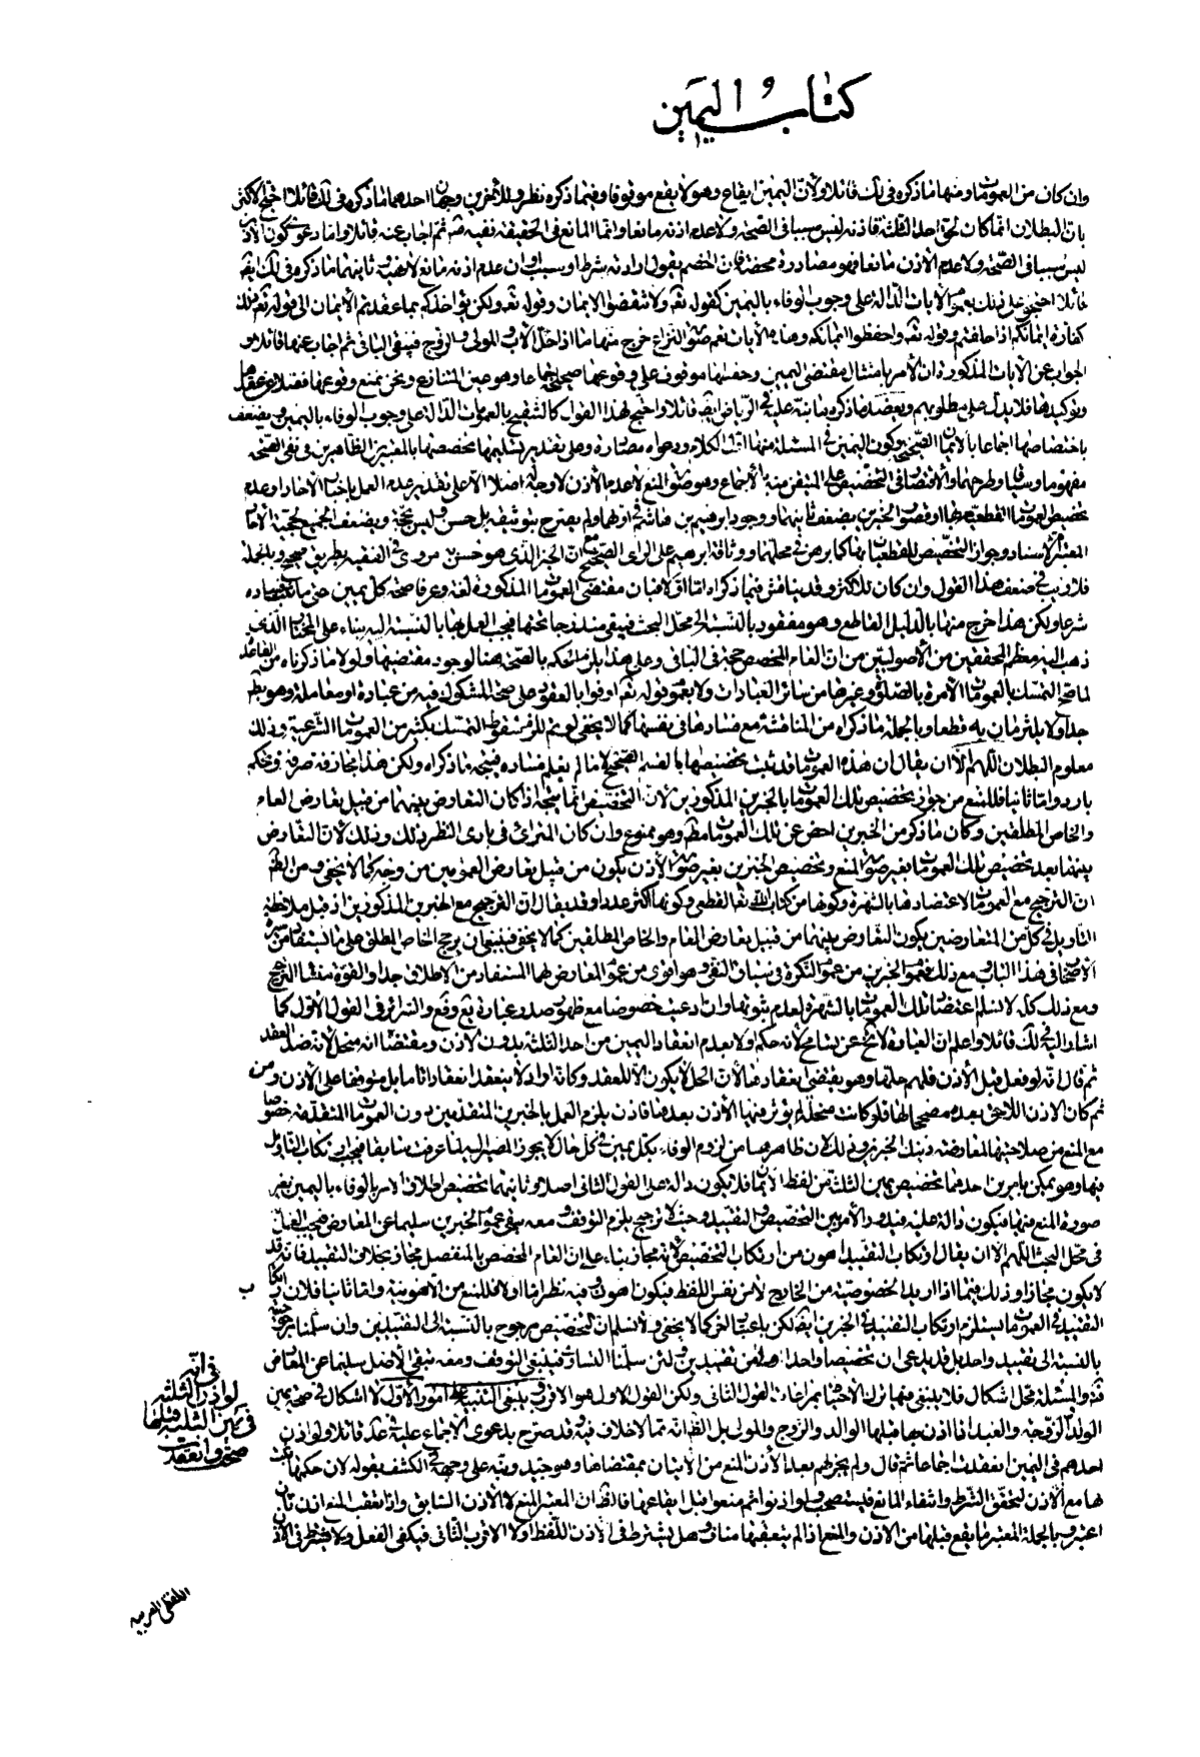 كتاب اليمين
وان كان من العمومات ومنها ما ذكره فى لك قائلا ولأن اليمين ايقاع وهو لا يقع موقوفا وفيما ذكره نظر وللآخرين وجهان احدهما ما ذكره فى لك قائلا احتج الاكثر
بان البطلان انما كان لحق احد الثلثة فاذنه ليس سببا فى الصحة ولا عدم اذنه مانعا وانما المانع فى الحقيقة نفيه ثم اجاب عنه قائلا واما دعوى كون الاذن
ليس سببا فى الصحة ولا عدم الاذن مانعا فهو مصادرة محضة فان الخصم يقول ان اذنه شرط او سبب وان عدم اذنه مانع لا نفيه وثانيهما ما ذكره فى لك ايضا
قائلا احتجوا على ذلك بعموم الآيات الدالة على وجوب الوفاء باليمين كقوله تعه ولا تنقضوا الايمان وقوله تعه ولكن يؤاخذكم بما عقدتم الايمان الى قوله تعه ذلك
كفارة ايمانكم اذا حلفتم وقوله تعه واحفظوا ايمانكم وهذه الآيات تعم صورة النزاع خرج منها ما اذا حل الاب والمولى والزوج فيبقى الباقى ثم اجاب عنها قائلا و
الجواب عن الآيات المذكورة ان الامر بامتثال مقتضى اليمين وحفظها موقوف على وقوعها صحيحة اجماعا وهو عين المتنازع ونحن نمنع وقوعها فضلا عن عقدها
وتوكيدها فلا يدل على مطلوبهم ويعضد ما ذكره ما نبه عليه فى الرياض ايضا قائلا واحتج لهذا القول كالشفيع بالعمومات الدالة على وجوب الوفاء باليمين ويضعف
باختصاصها اجماعا بالايمان الصحيحة وكون اليمين فى المسئلة منها اول الكلام ودعواه مصادرة وعلى تقدير تسليمها مخصصها بالمعتبرين الظاهرين فى نفى الصحة
مفهوما وسياقا وطرحهما والاقتصار فى التخصيص على المتيقن منه بالاجماع وهو صورة المنع لا عدم الاذن لا وجه له اصلا الا على تقدير عدم العمل باخبار الآحاد او عدم
تخصيص العمومات القطعية بها او قصور الخبرين بضعف ثانيهما ووجود ابرهيم بن هاشم فى اولهما ولم يصرح بتوثيقه بل حسن وليس بحجة ويضعف الجميع بحجية الآحاد
المعتبر الاسناد وجواز التخصيص للقطعيات بها كما برهن فى محلهما ووثاقة ابرهيم على الراى الصحيح مع ان الخبر الذى هو حسن مروى فى الفقيه بطريق صحيح وبالجملة
فلا ريب فى ضعف هذا القول وان كان للاكثر وقد يناقش فيما ذكراه اما اولا فبان مقتضى العمومات المذكورة لغة وعرفا صحة كل يمين حتى ما ثبت فساده
شرعا ولكن هذا خرج منها بالدليل القاطع وهو مفقود بالنسبة الى محل البحث فيبقى مندرجا تحتها فيجب العمل بها بالنسبة اليه بناء على المختار الذى
ذهب اليه معظم المحققين من الأصوليين من ان العام المخصص حجة فى الباقى وعلى هذا يلزم الحكم بالصحة هنا لوجود مقتضيها ولولا ما ذكرناه من القاعدة
لما صح التمسك بالعمومات الآمرة بالصلوة وغيرها من سائر العبادات ولا بعموم قوله تعه اوفوا بالعقود على صحة المشكوك فيه من عبادة او معاملة وهو بط
جدا ولا يلتزمان به قطعا وبالجملة ما ذكراه من المناقشة مع فسادها فى نفسها كما لا يخفى لو تم للزم سقوط التمسك بكثير من العمومات الشرعية وذلك
معلوم البطلان اللهم الا ان يقال ان هذه العمومات قد ثبت تخصيصها بالقسم الصحيح لا ما لم يعلم فساده فيتجه ما ذكراه ولكن هذا مجازفة صرفة وتحكم
بارد واما ثانيا فللمنع من جواز تخصيص تلك العمومات بالخبرين المذكورين لان التخصيص انما يتجه اذا كان التعارض بينهما من قبيل تعارض العام
والخاص المطلقين وكان ما ذكر من الخبرين اخص عن تلك العمومات مطلقا وهو ممنوع وان كان المترائى فى بادى النظر ذلك وذلك لان التعارض
بينهما بعد تخصيص تلك العمومات بغير صورة المنع وتخصيص الخبرين بغير صورة الاذن يكون من قبيل تعارض العمومين من وجه كما لا يخفى ومن الظاهر
ان الترجيح مع العمومات لاعتضادها بالشهرة وكونها من كتاب الله تعه القطعى وكونها اكثر عددا وقد يقال ان الترجيح مع الخبرين المذكورين اذ قبل ملاحظة
التاويل فى كل من المتعارضين يكون التعارض بينهما من قبيل تعارض العام والخاص المطلقين كما لا يخفى فينبغى ان يرجح الخاص المطلق على ما يستفاد من سيرة
الاصحاب فى هذا الباب مع ذلك فعموم الخبرين من عموم النكرة فى سياق النفى وهو اقوى من عموم المعارض لهما المستفاد من الاطلاق جدا والقوة منشأ الترجيح
ومع ذلك كله لا نسلم اعتضاد تلك العمومات بالشهرة لعدم ثبوتها وان ادعيت خصوصا مع ظهور صدر عبارة يع وقع والشرائع فى القول الاول كما
اشار اليه فى لك قائلا واعلم ان العبارة لا تخ عن تسامح لانه حكم اولا بعدم انعقاد اليمين من احد الثلثة بدون الاذن ومقتضاه انه منحل لانه ضد العقد
ثم قال انه لو فعل قبل الاذن فلهم حلها وهو يقتضى انعقادها لان الحل لا يكون الا للعقد وكانه اراد لا ينعقد انعقادا تاما بل موقوفا على الاذن ومن
ثم كان الاذن اللاحق بعده مصححا لها فلو كانت منحلة لم يؤثر فيها الاذن بعدها فاذن يلزم العمل بالخبرين المتقدمين دون العمومات المتقدمة خصوصا
مع المنع من صلاحيتها لمعارضة ذينك الخبرين وذلك لان ظاهرها من لزوم الوفاء بكل يمين فى كل حال لا يجوز المصير اليه لما عرفت سابقا فيجب ارتكاب التاويل
فيها وهو يمكن بامرين احدهما تخصيص يمين الثلثة من لفظ الايمان فلا يكون دالة على القول الثانى اصلا وثانيهما تخصيص اطلاق الامر بالوفاء باليمين بغير
صورة المنع منها فيكون دالة عليه فيدور الأمر بين التخصيص والتقييد وحيث لا ترجيح يلزم التوقف ومعه يبقى عموم الخبرين سليما عن المعارض فيجب العمل به
فى محل البحث اللهم الا ان يقال ارتكاب التقييد اهون من ارتكاب التخصيص لانه مجاز بناء على ان العام المخصص بالمنفصل مجاز بخلاف التقييد فانه قد
لا يكون مجازا وذلك فيما اذا اريد الخصوصية من الخارج لا من نفس اللفظ فيكون اهون وفيه نظر اما اولا فللمنع من الاهونية واما ثانيا فلان ارتكاب
التقييد فى العمومات ما يستلزم ارتكاب التقييد فى الخبرين ايضا لكن باعتبار آخر كما لا يخفى ولا نسلم ان التخصيص مرجوح بالنسبة الى التقييدين وان سلمنا مرجوحيته
بالنسبة الى تقييد واحد بل قد يدعى ان تخصيصا واحدا اهون من تقييدين ولئن سلمنا التساوى فينبغى التوقف ومعه تبقى الاصل سليما عن المعارض
فتدبر والمسئلة محل اشكال فلا ينبغى فيها ترك الاحتياط بمراعات القول الثانى ولكن القول الاول هو الاقرب وينبغى التنبيه على امور الاول لا اشكال فى صحة يمين
الولد والزوجة والعبد اذا اذن بها قبلها الوالد والزوج والمولى بل الظ انه مما لا خلاف فيه وقد صرح بدعوى الاجماع عليه فى عد قائلا ولو اذن
احدهم فى اليمين انعقدت اجماعا ثم قال ولم يجز لهم بعد الاذن المنع من الاتيان بمقتضاها وهو جيد ونبه على وجهه فى الكشف بقوله لان حكمها يثبت
لها مع الاذن لتحقق الشرط وانتفاء المانع فليستصحب ولو اذنوا ثم منعوا قبل ايقاعها فالظ ان المعتبر المنع لا الاذن السابق واذا تعقب المنع اذن ثان
اعتبر وبالجملة المعتبر ما يقع قبلها من الاذن والمنع اذا لم يتعقبها مناف وهل يشترط فى الاذن اللفظ او لا الاقرب الثانى فيكفى الفعل ولا يشترط فى الاذن
فى انه
لو اذن الثلثة
فى يمين الثلثة قبلها
صحت وانعقدت
اللفظى العربية